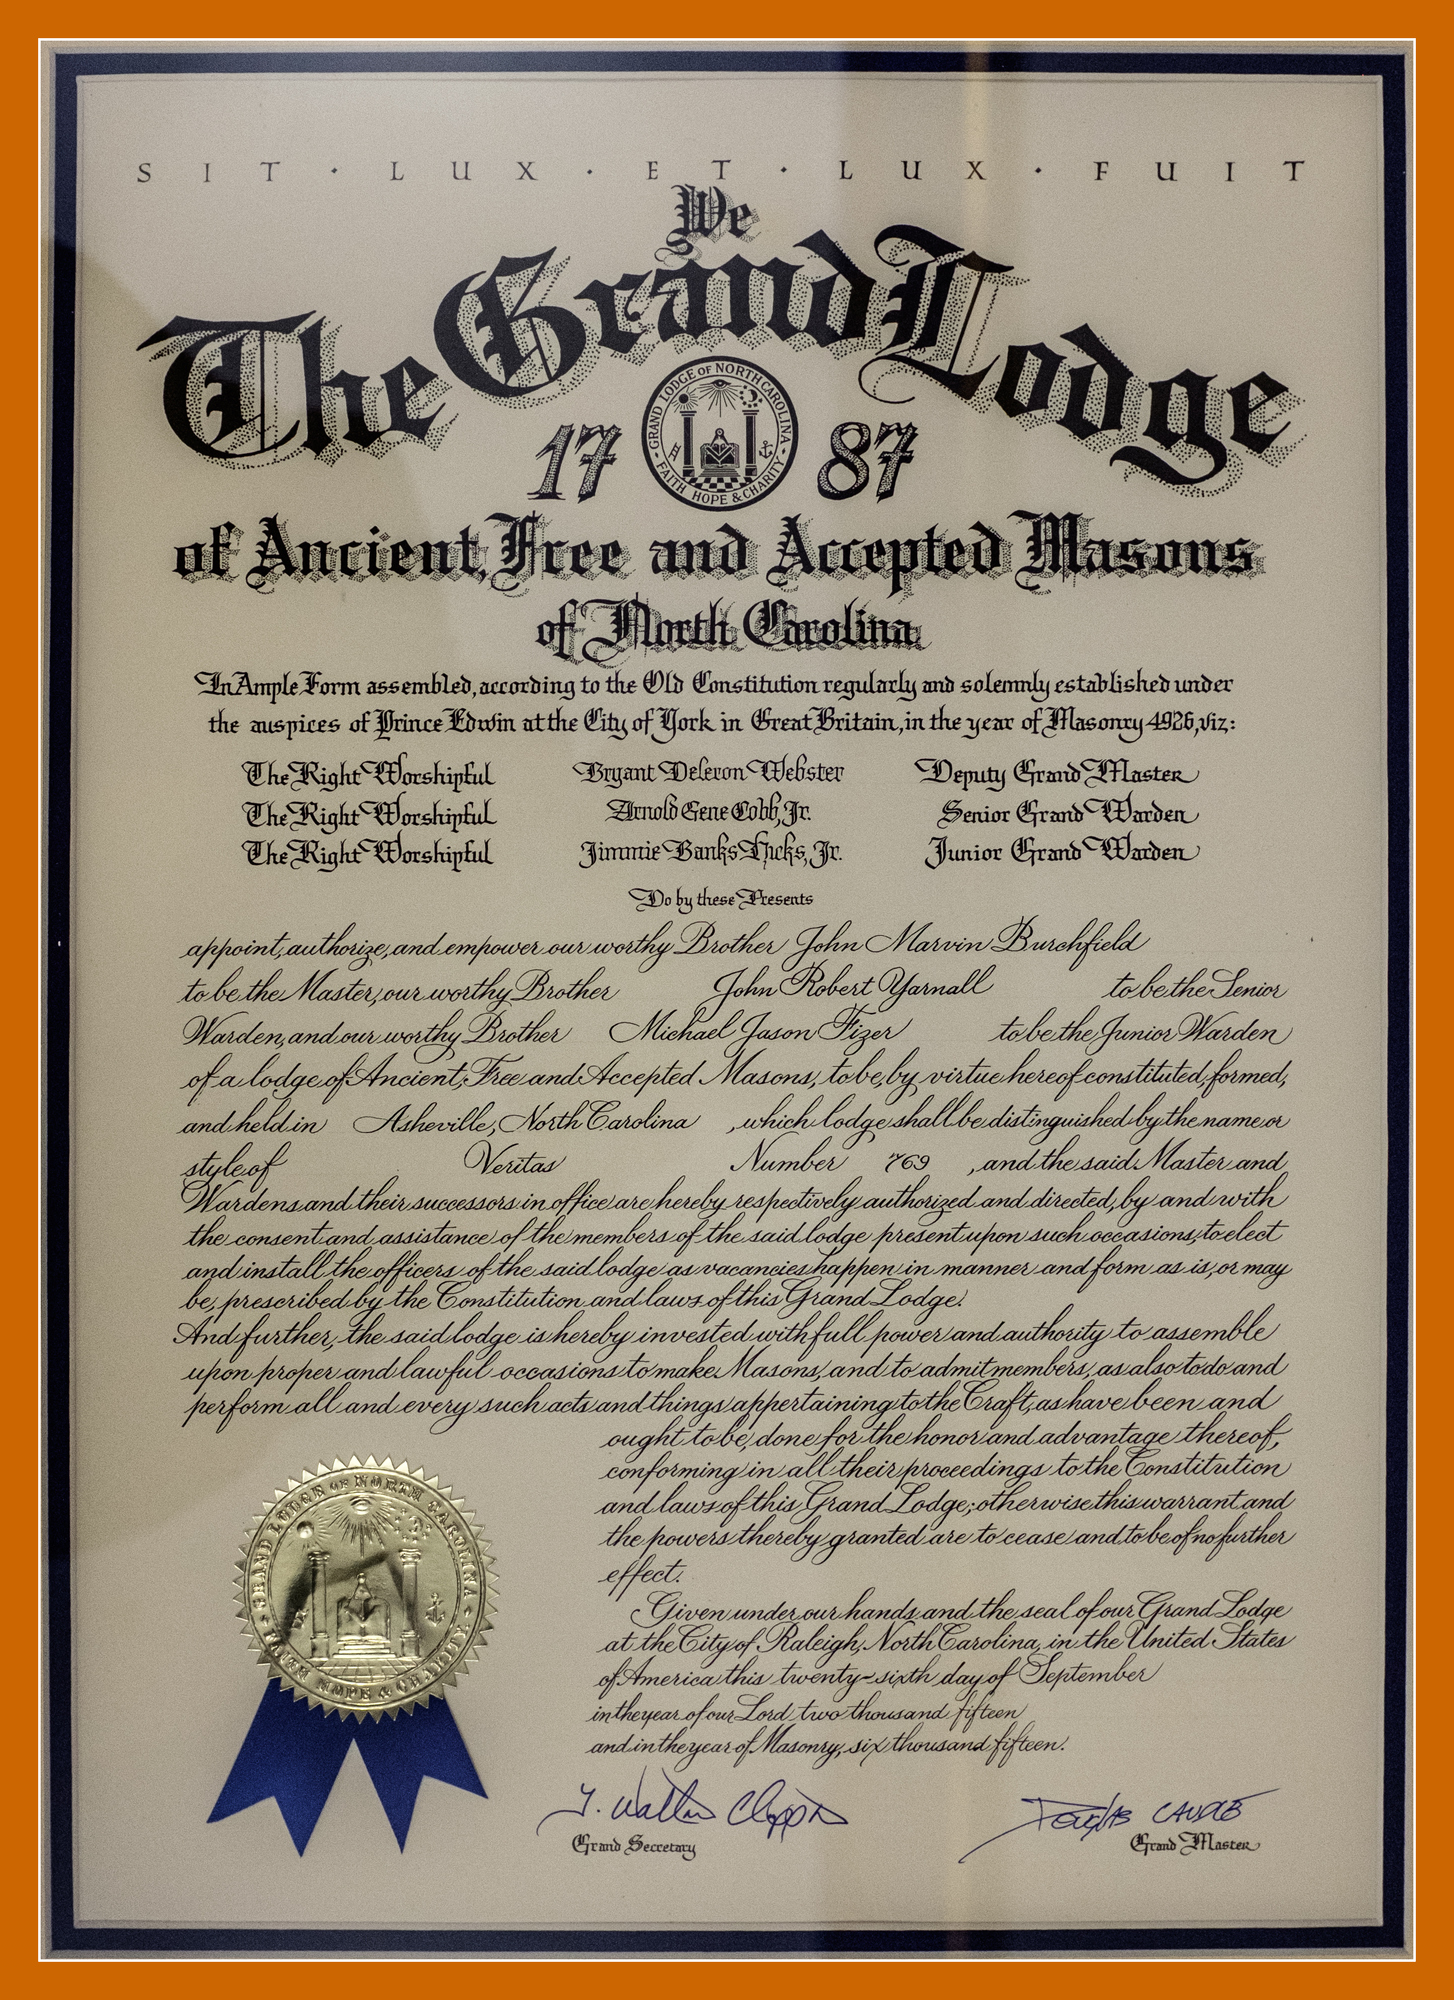 SIT · LUX · ET · LUX · FUIT
We
The Grand Lodge
GRAND LODGE OF NORTH CAROLINA
17 87
FAITH HOPE & CHARITY
of Ancient, Free and Accepted Masons
of North Carolina
In Ample Form assembled, according to the Old Constitution regularly and solemnly established under
the auspices of Prince Edwin at the City of York in Great Britain, in the year of Masonry 4926, viz:
The Right Worshipful Bryant Deleron Webster Deputy Grand Master
The Right Worshipful Arnold Gene Cobb, Jr. Senior Grand Warden
The Right Worshipful Jimmie Banks Hicks, Jr. Junior Grand Warden
Do by these Presents
appoint, authorize, and empower our worthy Brother John Marvin Burchfield
to be the Master, our worthy Brother John Robert Yarnall to be the Senior
Warden, and our worthy Brother Michael Jason Fizer to be the Junior Warden
of a lodge of Ancient, Free and Accepted Masons, to be, by virtue hereof constituted, formed,
and held in Asheville, North Carolina , which lodge shall be distinguished by the name or
style of Veritas Number 769 , and the said Master and
Wardens and their successors in office are hereby respectively authorized and directed, by and with
the consent and assistance of the members of the said lodge present upon such occasions, to elect
and install the officers of the said lodge as vacancies happen in manner and form as is, or may
be, prescribed by the Constitution and laws of this Grand Lodge.
And further, the said lodge is hereby invested with full power and authority to assemble
upon proper and lawful occasions to make Masons, and to admit members, as also to do and
perform all and every such acts and things appertaining to the Craft, as have been and
ought to be, done for the honor and advantage thereof,
conforming in all their proceedings to the Constitution
and laws of this Grand Lodge; otherwise this warrant and
the powers thereby granted are to cease and to be of no further
effect.
Given under our hands and the seal of our Grand Lodge
at the City of Raleigh, North Carolina, in the United States
of America this twenty-sixth day of September
in the year of our Lord two thousand fifteen
and in the year of Masonry, six thousand fifteen.
GRAND LODGE OF NORTH CAROLINA
FAITH HOPE & CHARITY
T. Walton Clapp Douglas Caudle
Grand Secretary Grand Master